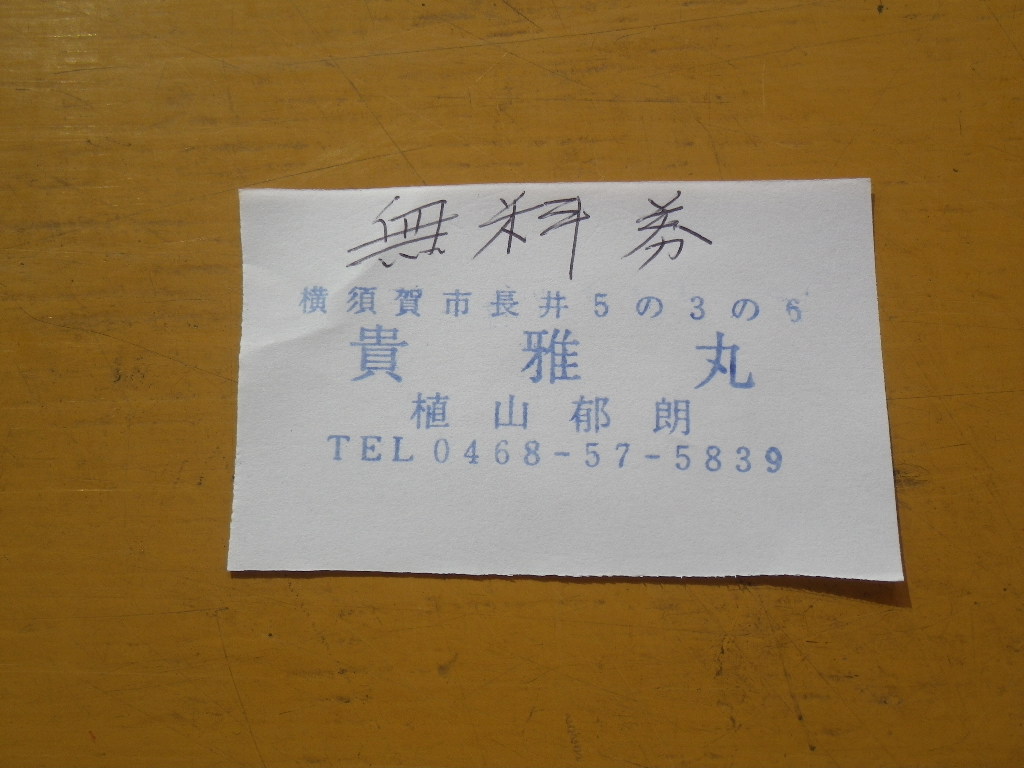 無料券
横須賀市長井5の3の6
貴雅丸
植山郁朗
TEL0468-57-5839